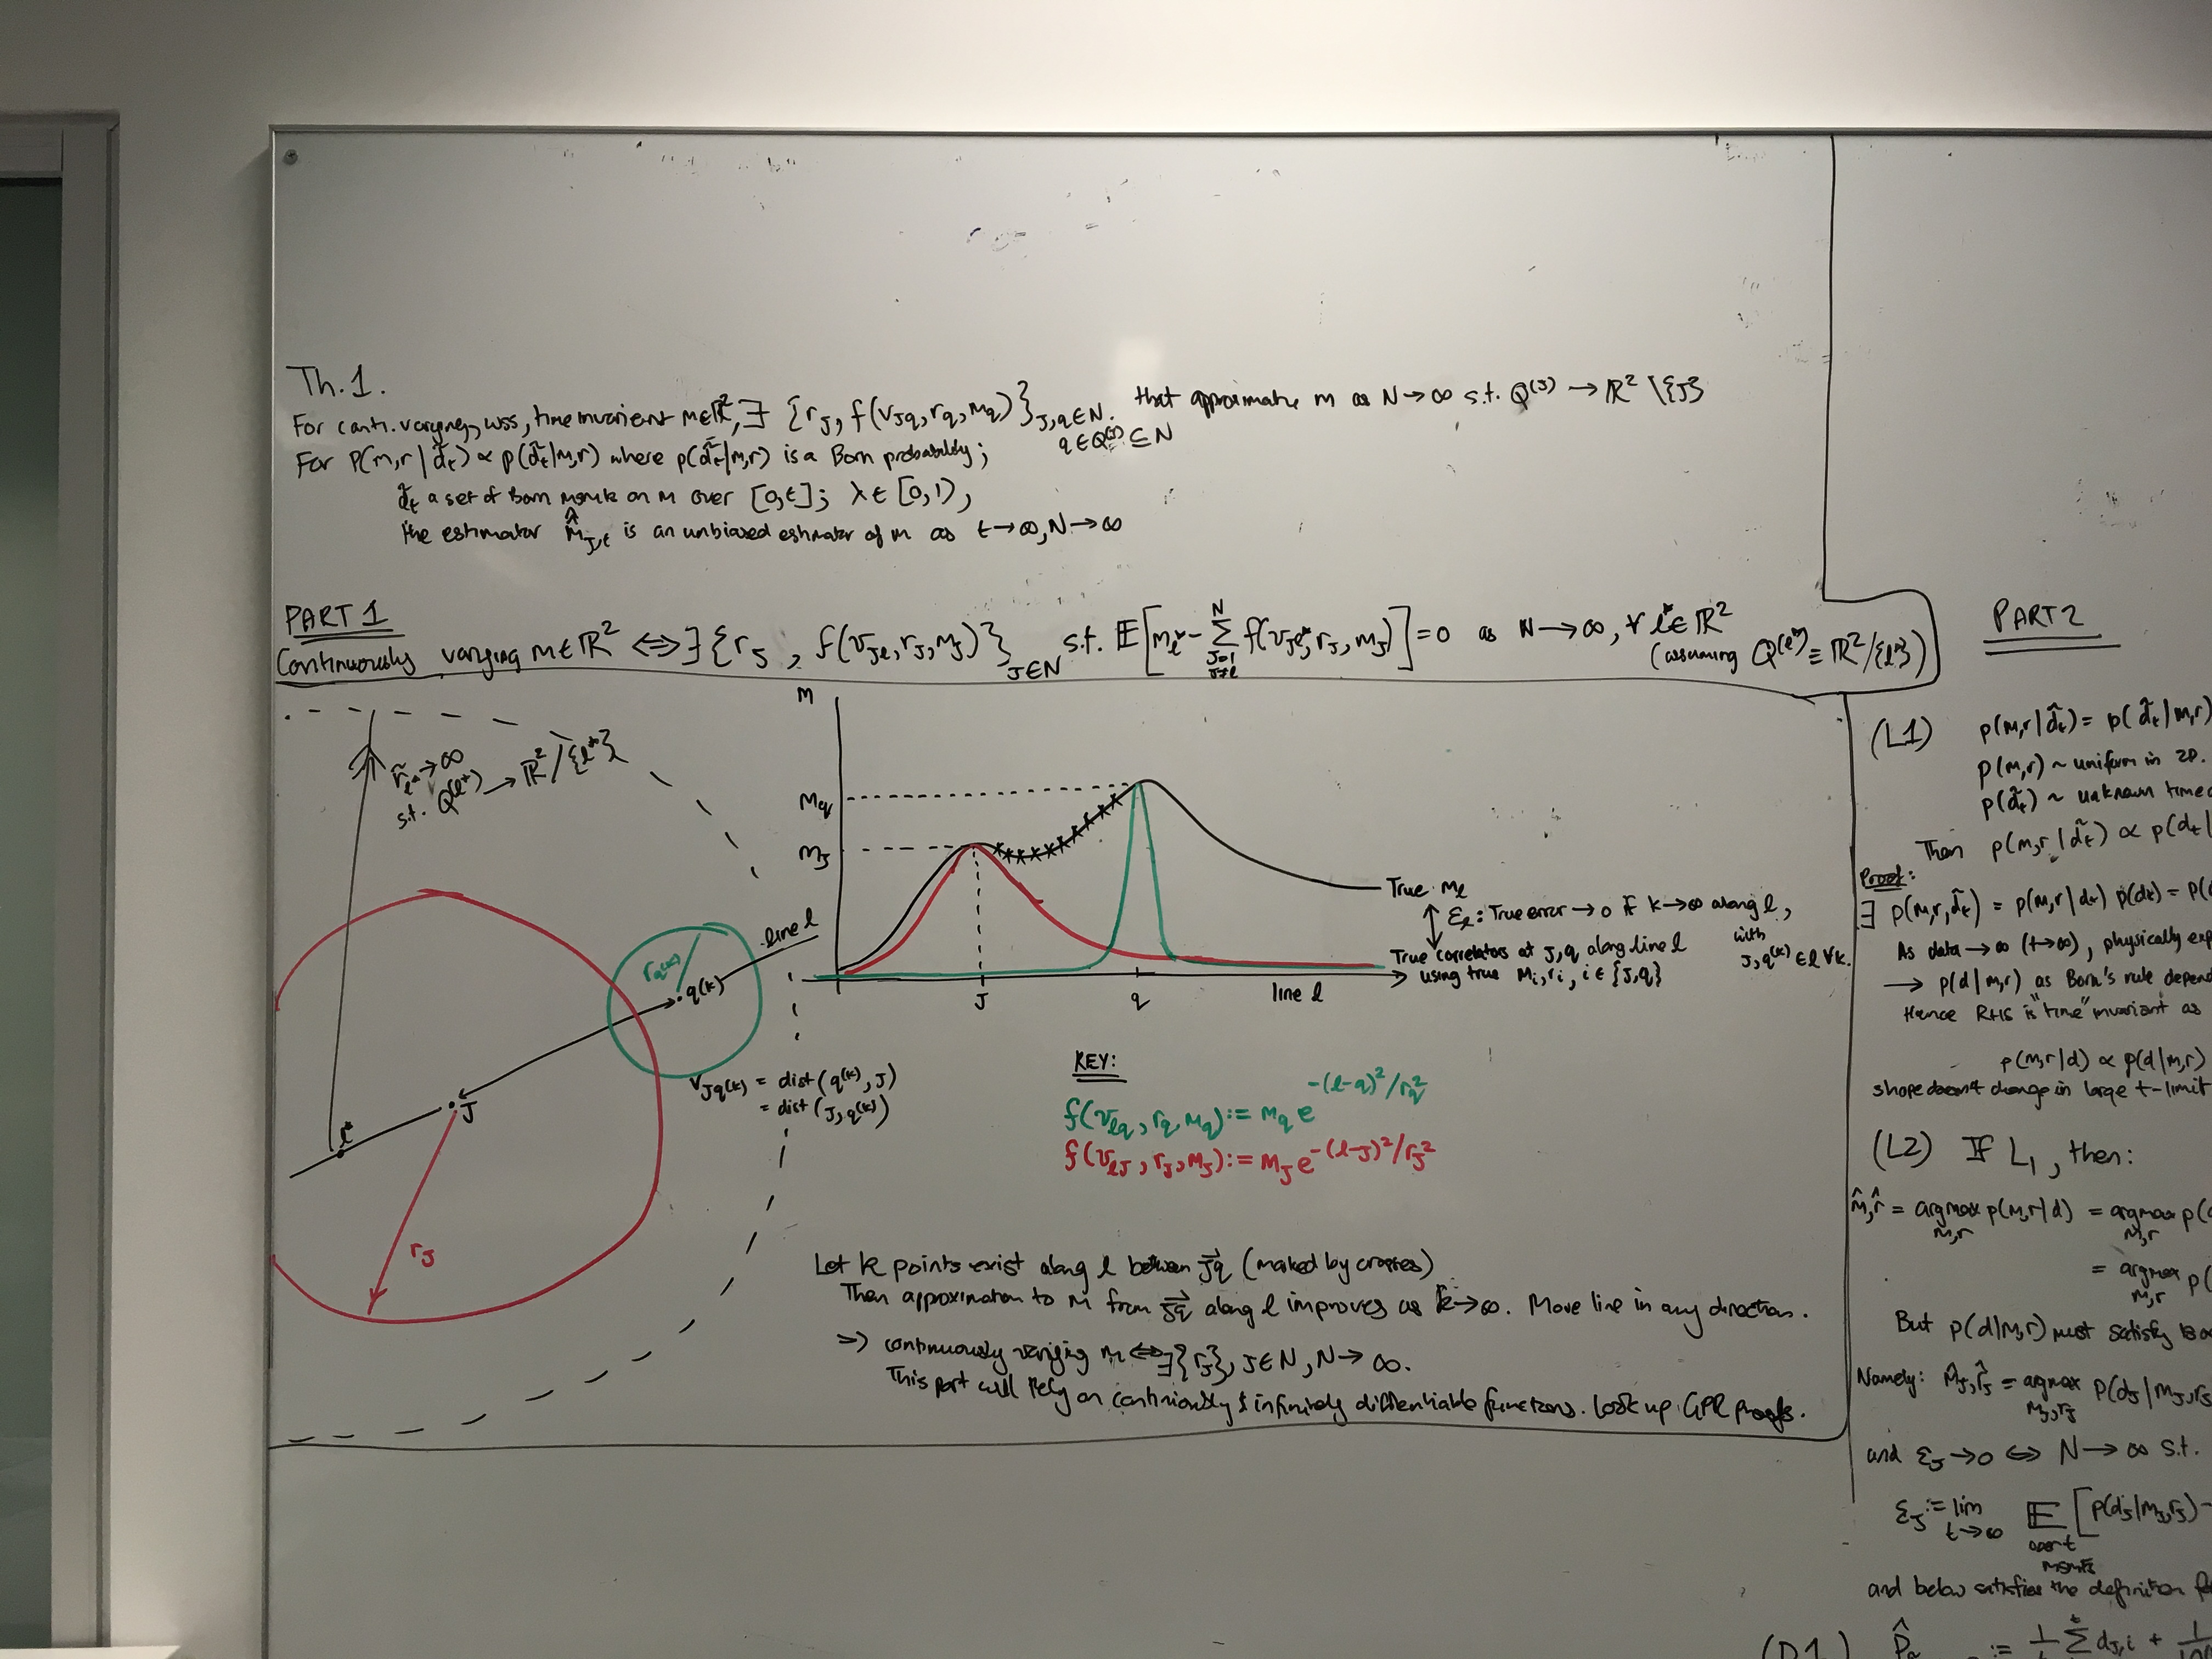 Th.1.
For conti. varying, wss, time invariant m∈ℝ², ∃ {r_J, f(v_Jq, r_q, m_q)}_{J,q∈N. q∈Q^(J)⊆N} that approximate m as N→∞ s.t. Q^(J) → ℝ² \{J}
For P(m,r | d̃_t) ∝ p(d̃_t|m,r) where p(d̃_t|m,r) is a Born probability;
d̃_t a set of Born msmts on m over [0,t]; λ∈[0,1),
the estimator m̂_J,t is an unbiased estimator of m as t→∞, N→∞
PART 1
Continuously varying m∈ℝ² ⇔ ∃{r_J, f(v_Jl, r_J, m_J)}_{J∈N} s.t. 𝔼[m_l* - Σ_{J=1, J≠l}^N f(v_Jl*, r_J, m_J)] = 0 as N→∞, ∀ l*∈ℝ²
(assuming Q^(l*) ≡ ℝ²/{l*})
r̃_l* → ∞
s.t. Q^(l*) → ℝ²/{l*}
line l
r_q(k)
q(k)
J
l*
r_J
v_Jq(k) = dist(q^(k), J)
= dist(J, q^(k))
m
m_q
m_J
J
q
line l
True m_l
↕ ε_l: True error → 0 if k→∞ along l,
with J, q^(k) ∈ l ∀k.
True correlators at J,q along line l
using true m_i, r_i, i∈{J,q}
KEY:
f(v_lq, r_q, m_q) := m_q e^{-(l-q)²/r_q²}
f(v_lJ, r_J, m_J) := m_J e^{-(l-J)²/r_J²}
Let k points exist along l between Jq (marked by crosses)
Then approximation to m from Jq along l improves as k→∞. Move line in any direction.
=> continuously varying m ⇔ ∃{r_J}, J∈N, N→∞.
This part will rely on continuously & infinitely differentiable functions. Look up GPR proofs.
PART 2
(L1) p(m,r|d̃_t) = p(d̃_t|m,r)
p(m,r) ~ uniform in 2D.
p(d̃_t) ~ unknown time
Then p(m,r|d̃_t) ∝ p(d_t|
Proof:
∃ p(m,r,d̃_t) = p(m,r|d_t) p(d_t) = p(
As data→∞ (t→∞), physically exp
→ p(d|m,r) as Born's rule depend
Hence RHS is "time" invariant as
p(m,r|d) ∝ p(d|m,r)
shape doesn't change in large t-limit
(L2) If L1, then:
m̂,r̂ = argmax_{m,r} p(m,r|d) = argmax_{m,r} p(
= argmax_{m,r} p(
But p(d|m,r) must satisfy Bo
Namely: m̂_J, r̂_J = argmax_{m_J,r_J} p(d_J|m_J,r_J
and ε_J→0 ⇔ N→∞ s.t.
ε_J := lim_{t→∞} 𝔼 [p(d_J|m_J,r_J) -
over t
msmts
and below satisfies the definition fo
(D1) P̂ := 1/t Σ^t d_J,i + 1